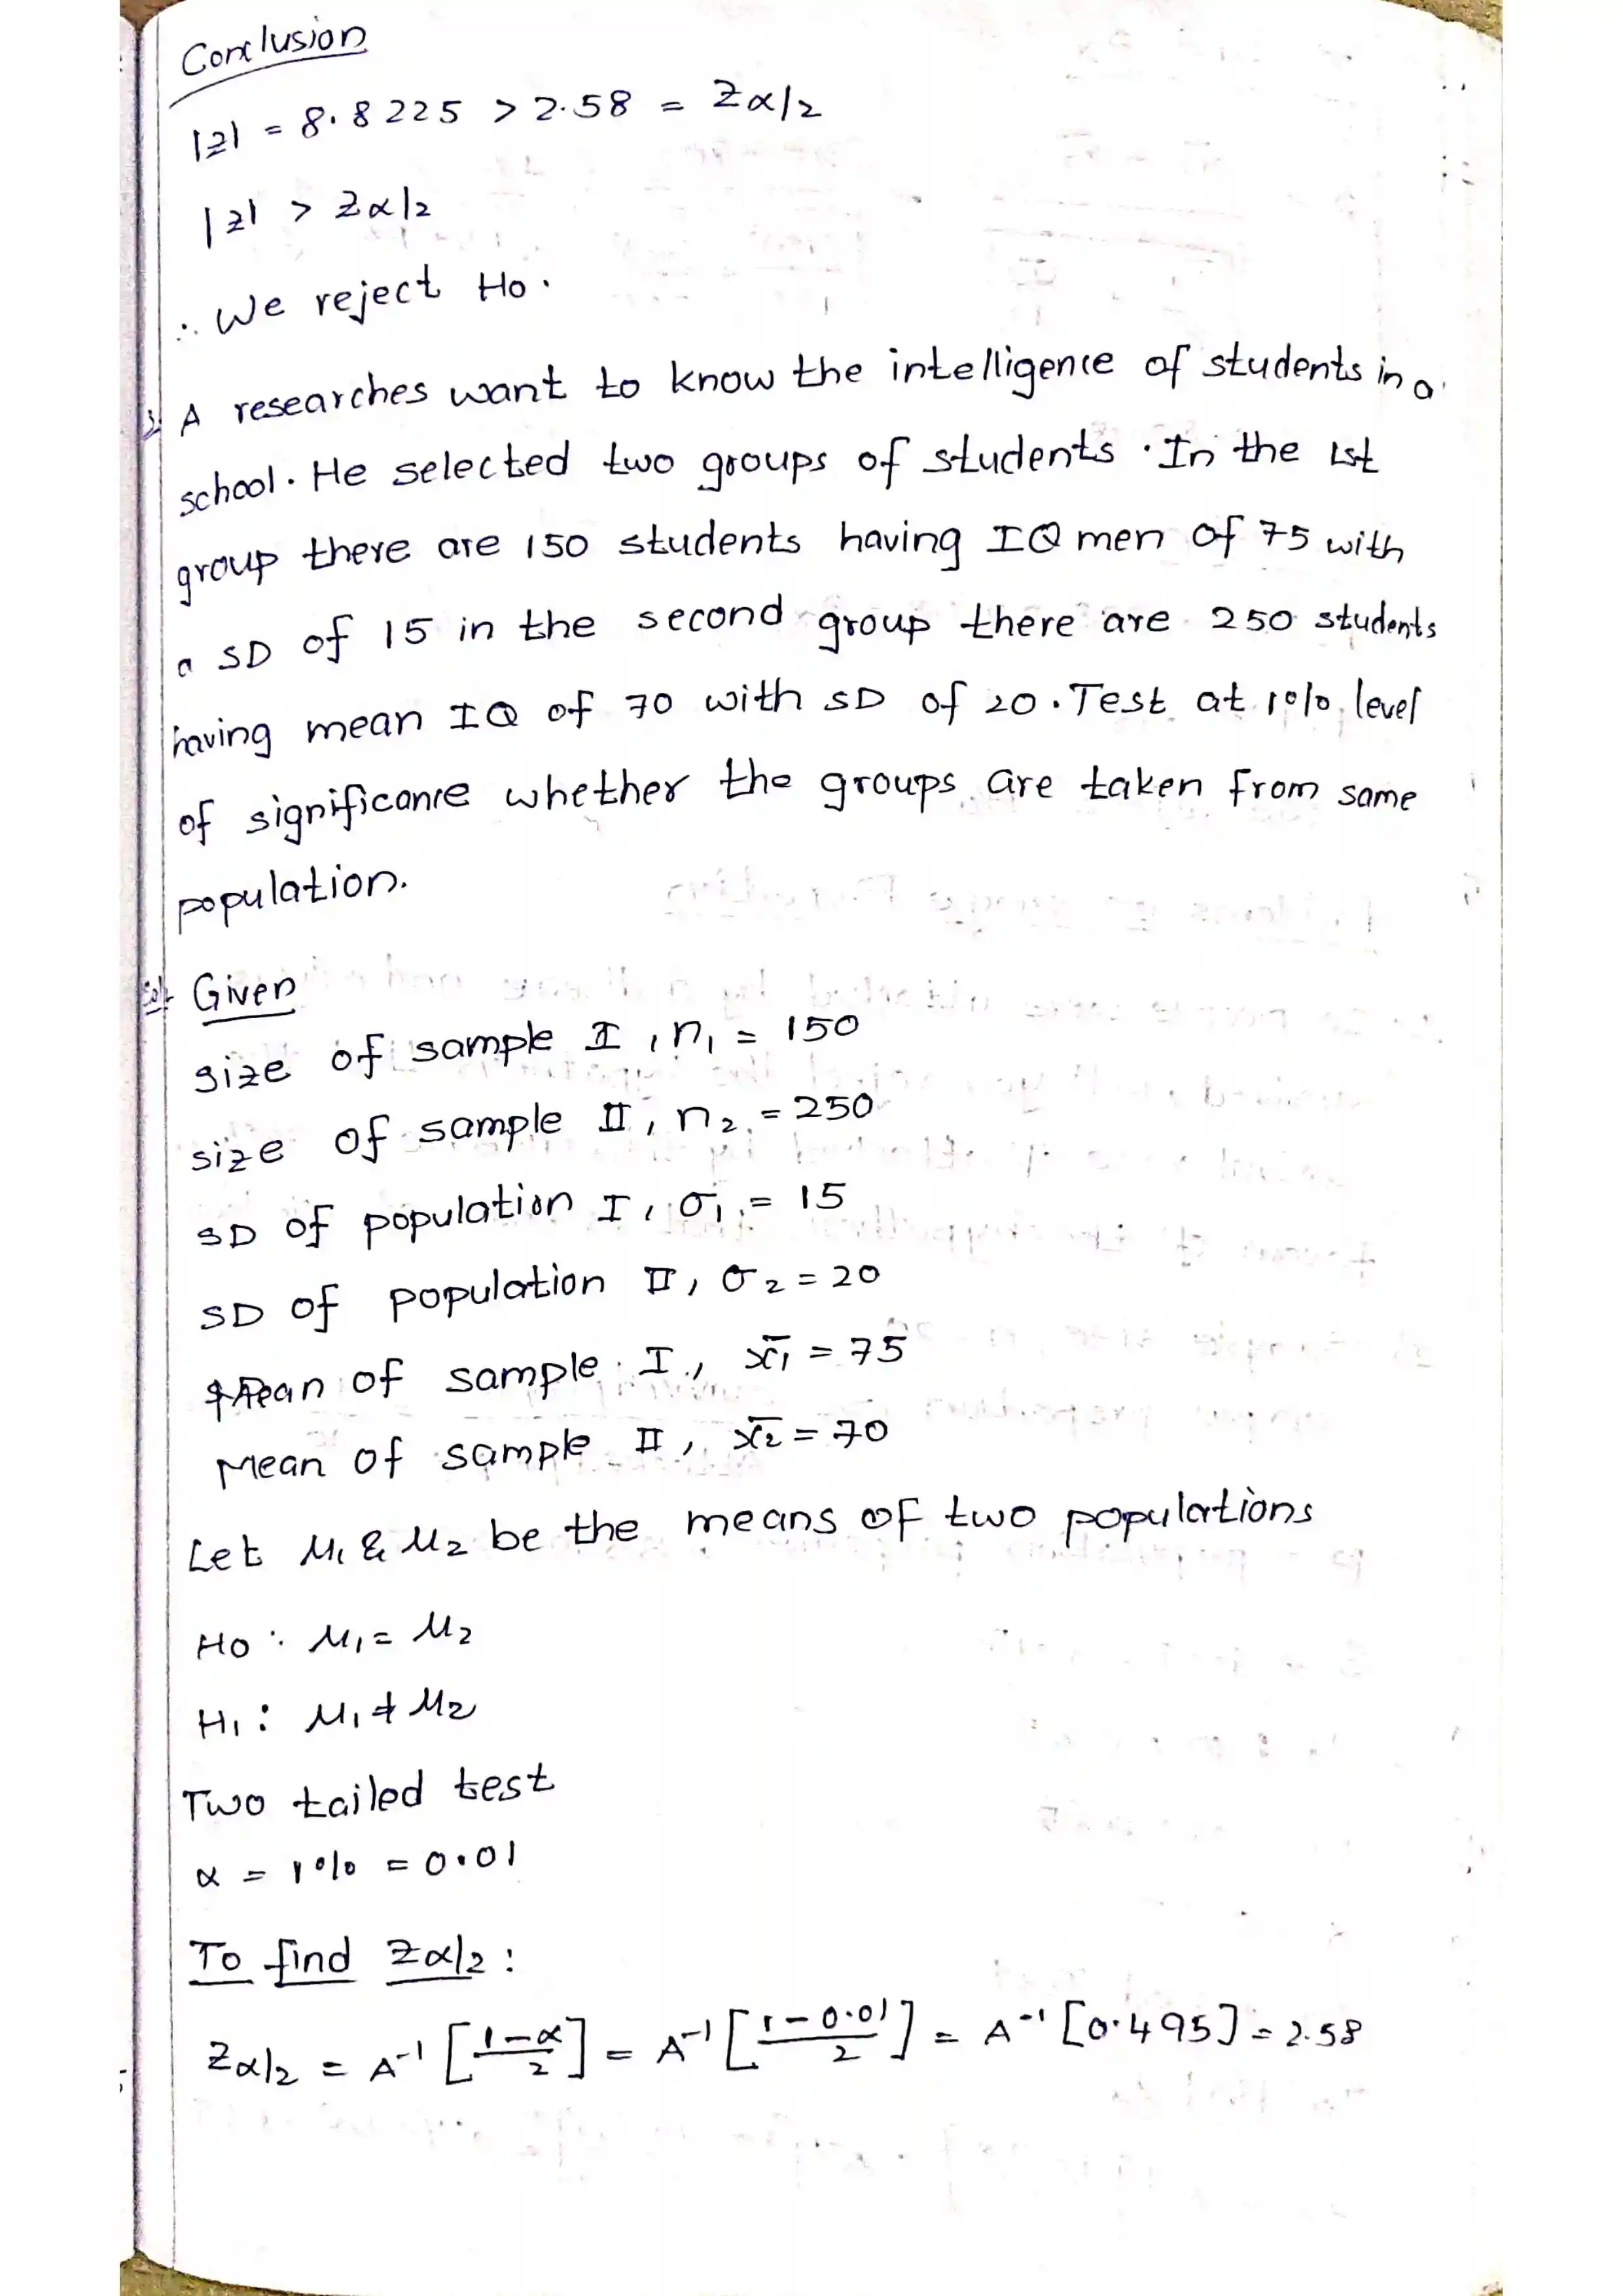 Conclusion
|z| = 8.8225 > 2.58 = Zα/2
|z| > Zα/2
∴ We reject Ho.
A researches want to know the intelligence of students in a
school. He selected two groups of students. In the 1st
group there are 150 students having IQ men of 75 with
a SD of 15 in the second group there are 250 students
having mean IQ of 70 with SD of 20. Test at 1% level
of significance whether the groups are taken from same
population.
Sol: Given
size of sample I, n₁ = 150
size of sample II, n₂ = 250
SD of population I, σ₁ = 15
SD of population II, σ₂ = 20
Mean of sample I, x̄₁ = 75
Mean of sample II, x̄₂ = 70
Let μ₁ & μ₂ be the means of two populations
Ho : μ₁ = μ₂
H₁ : μ₁ ≠ μ₂
Two tailed test
α = 1% = 0.01
To find Zα/2 :
Zα/2 = A⁻¹ [1-α/2] = A⁻¹ [1-0.01/2] = A⁻¹ [0.495] = 2.58